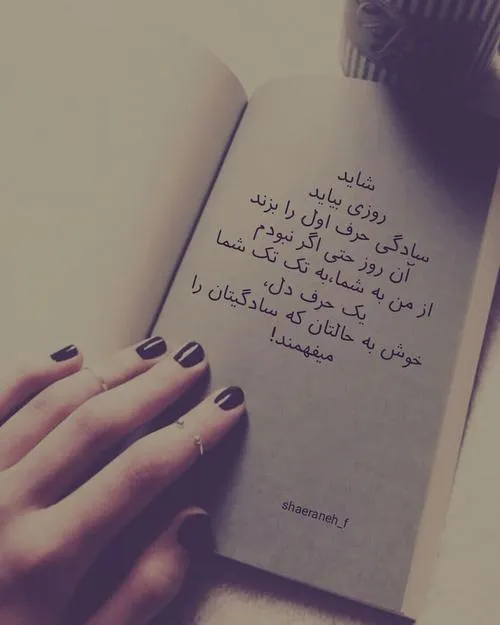 شاید
روزی بیاید
سادگی حرف اول را بزند
آن روز حتی اگر نبودم
از من به شما،به تک تک شما
یک حرف دل،
خوش به حالتان که سادگیتان را
میفهمند!
shaeraneh_f